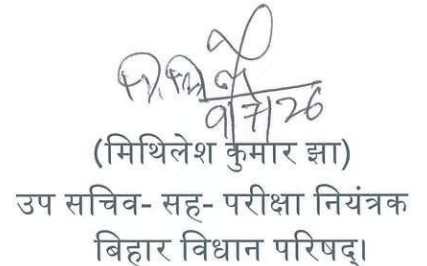 9/7/26
(मिथिलेश कुमार झा)
उप सचिव- सह- परीक्षा नियंत्रक
बिहार विधान परिषद्।